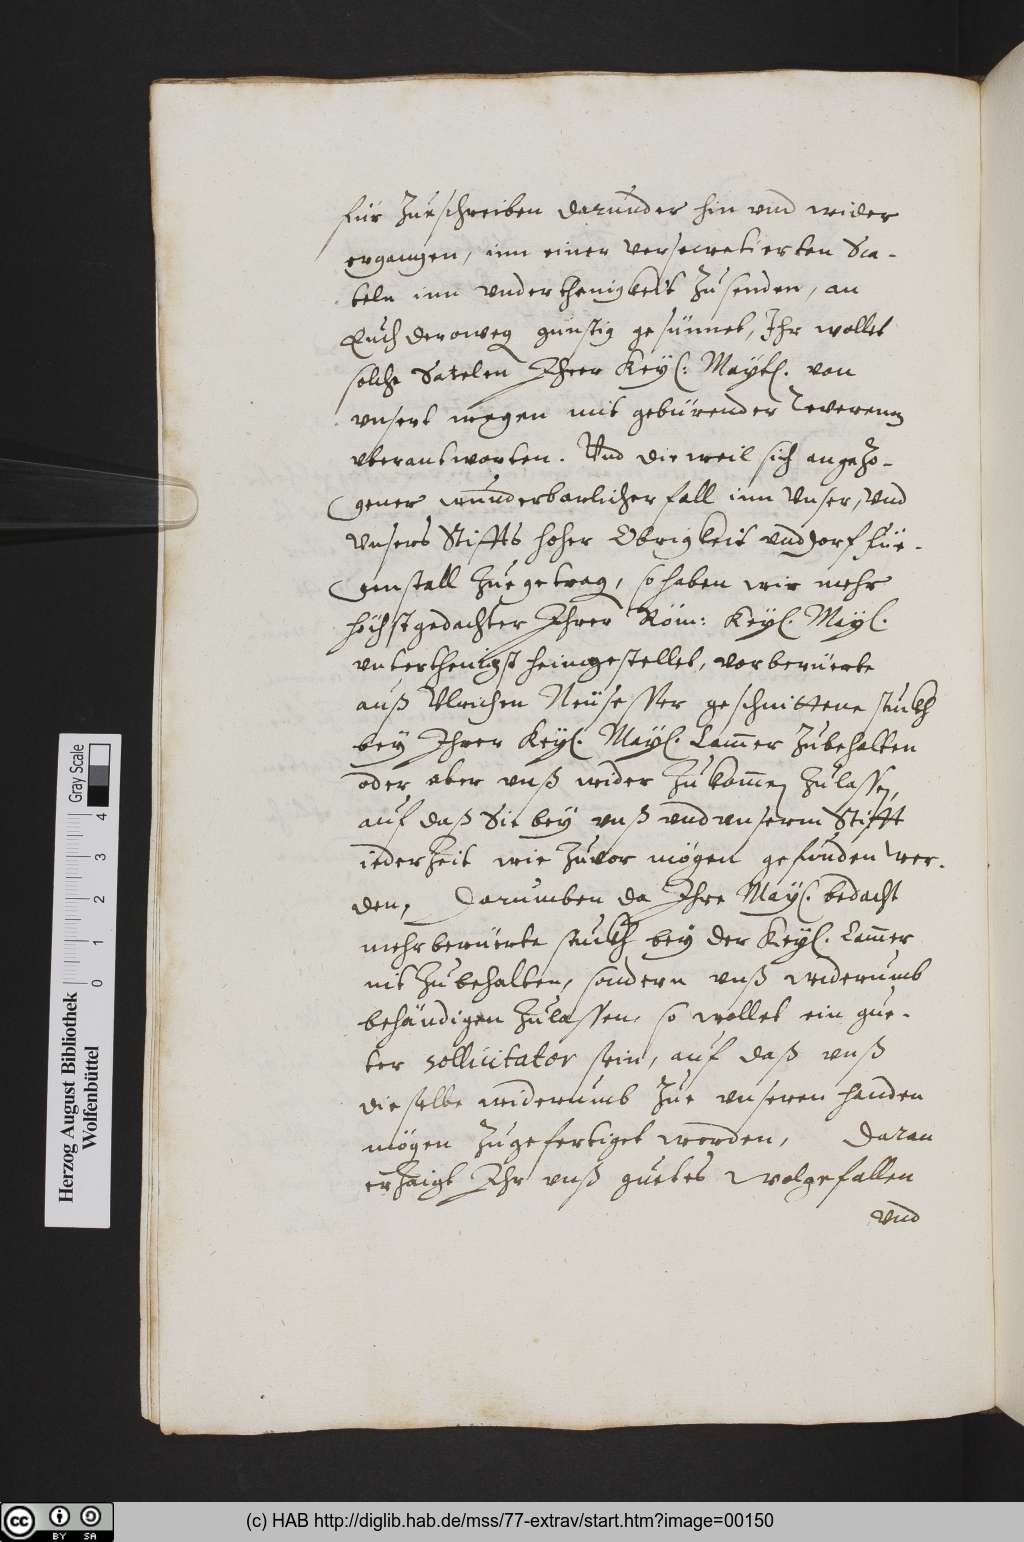 für Zueschreiben darunder hin vnd wider
ergangen, inn einer versecretierten Sca-
teln inn vnderthenigkeit Zusenden, an
Euch deroweg günstig gesinnet, Ihr wollet
solche Scatelen Ihrer Key: Mayt. von
vnsert wegen mit gebürender reverentz
vberantworten. Vnd dieweil sich angezo-
gener wunderbarlicher fall inn Vnser, Vnd
Vnsers Stiffts hoher Obrigkeit vnd dorf für-
genstall Zuegetrag, so haben wir mehr
höchstgedachter Ihrer Röm: Key. May.
vnterthenigst heimgestellet, vorberuerte
auß Ulrichen Neusesser geschnittene stuckh
bey Ihrer Key. May. Cam̄er Zubehalten
oder aber vnß wider Zukom̄en Zulassen,
auf daß Sie bey vnß vnd vnserm Stifft
iederzeit wie Zuvor mögen gefunden wer-
den, Darumben da Ihre May. bedacht
mehrberuerte stuckh bey der Key. Cam̄er
nit Zubehalten, sondern vnß widerumb
behändigen Zulassen, so wollet ein gue-
ter sollicitator sein, auf daß vnß
dieselbe widerumb Zue vnseren handen
mögen Zugefertiget werden, Daran
erzaigt Ihr vnß guetes wolgefallen
vnd
Herzog August Bibliothek
Wolfenbüttel
0 1 2 3 4
Gray Scale
cc BY SA
(c) HAB http://diglib.hab.de/mss/77-extrav/start.htm?image=00150